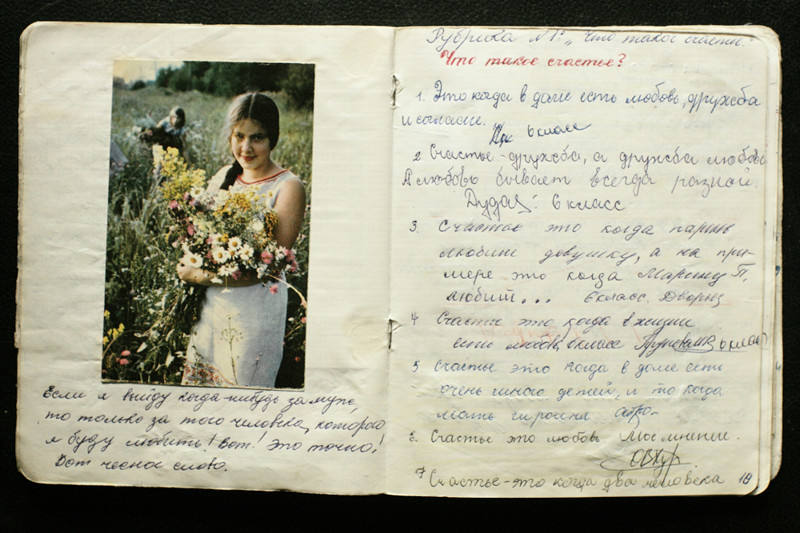 Если я выйду когда-нибудь замуж,
то только за того человека, которого
я буду любить! Вот! Это точно!
Вот чесное слово.
Рубрика №1 „Что такое счастье.
Что такое счастье?
1. Это когда в доме есть любовь, дружба
и согласие.
6 класс
2. Счастье-дружба, а дружба любовь
А любовь бывает всегда разной.
6 класс
3. Счастье это когда парень
любит девушку, а на при-
мере это когда Марину П.
любит... 6 класс.
4 Счастье это когда в жизни
есть любовь, 6 класс 6 класс
5 Счастье это когда в доме есть
очень много детей, и то когда
мать
6. Счастье это любовь Мое мнение.
7 Счастье-это когда два человека 18